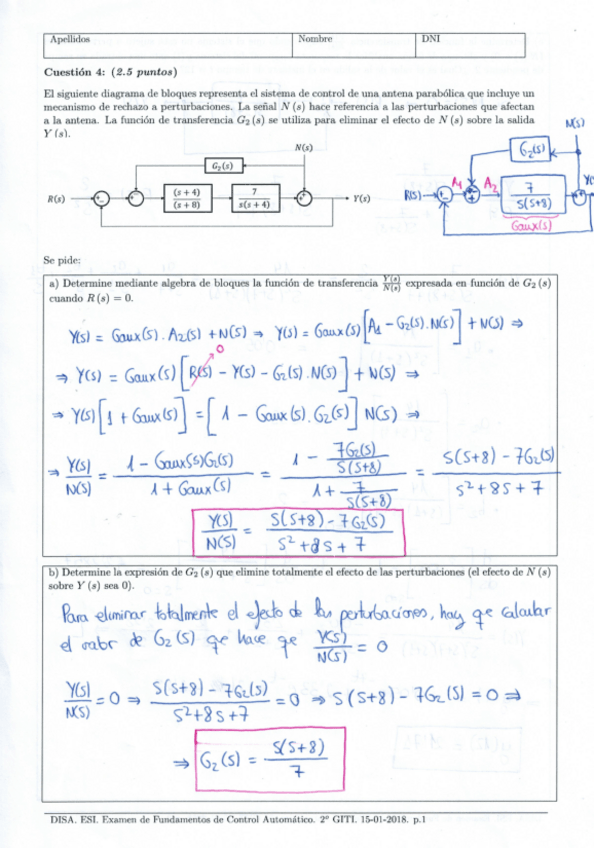 Apellidos Nombre DNI
Cuestión 4: (2.5 puntos)
El siguiente diagrama de bloques representa el sistema de control de una antena parabólica que incluye un
mecanismo de rechazo a perturbaciones. La señal N (s) hace referencia a las perturbaciones que afectan
a la antena. La función de transferencia G₂ (s) se utiliza para eliminar el efecto de N (s) sobre la salida
Y (s).
N(s)
G₂(s)
R(s) (s + 4)/(s + 8) 7/s(s + 4) Y(s)
N(s)
G₂(s)
R(s) A₁ A₂ 7/s(s+8) Y(
Gaux(s)
Se pide:
a) Determine mediante algebra de bloques la función de transferencia Y(s)/N(s) expresada en función de G₂ (s)
cuando R (s) = 0.
Y(s) = Gaux(s) · A₂(s) + N(s) ⇒ Y(s) = Gaux(s) [A₁ − G₂(s) . N(s)] + N(s) ⇒
⇒ Y(s) = Gaux(s) [R(s) − Y(s) − G₂(s) . N(s)] + N(s) ⇒
0
⇒ Y(s) [1 + Gaux(s)] = [1 − Gaux(s) . G₂(s)] N(s) ⇒
⇒ Y(s)/N(s) = (1 − Gaux(s)G₂(s))/(1 + Gaux(s)) = (1 − 7G₂(s)/s(s+8))/(1 + 7/s(s+8)) = (s(s+8) − 7G₂(s))/(s² + 8s + 7)
Y(s)/N(s) = (s(s+8) − 7G₂(s))/(s² + 8s + 7)
b) Determine la expresión de G₂ (s) que elimine totalmente el efecto de las perturbaciones (el efecto de N (s)
sobre Y (s) sea 0).
Para eliminar totalmente el efecto de las perturbaciones, hay qe calcular
el valor de G₂(s) qe hace qe Y(s)/N(s) = 0
Y(s)/N(s) = 0 ⇒ (s(s+8) − 7G₂(s))/(s²+8s+7) = 0 ⇒ s(s+8) − 7G₂(s) = 0 ⇒
⇒ G₂(s) = s(s+8)/7
DISA. ESI. Examen de Fundamentos de Control Automático. 2º GITI. 15-01-2018. p.1